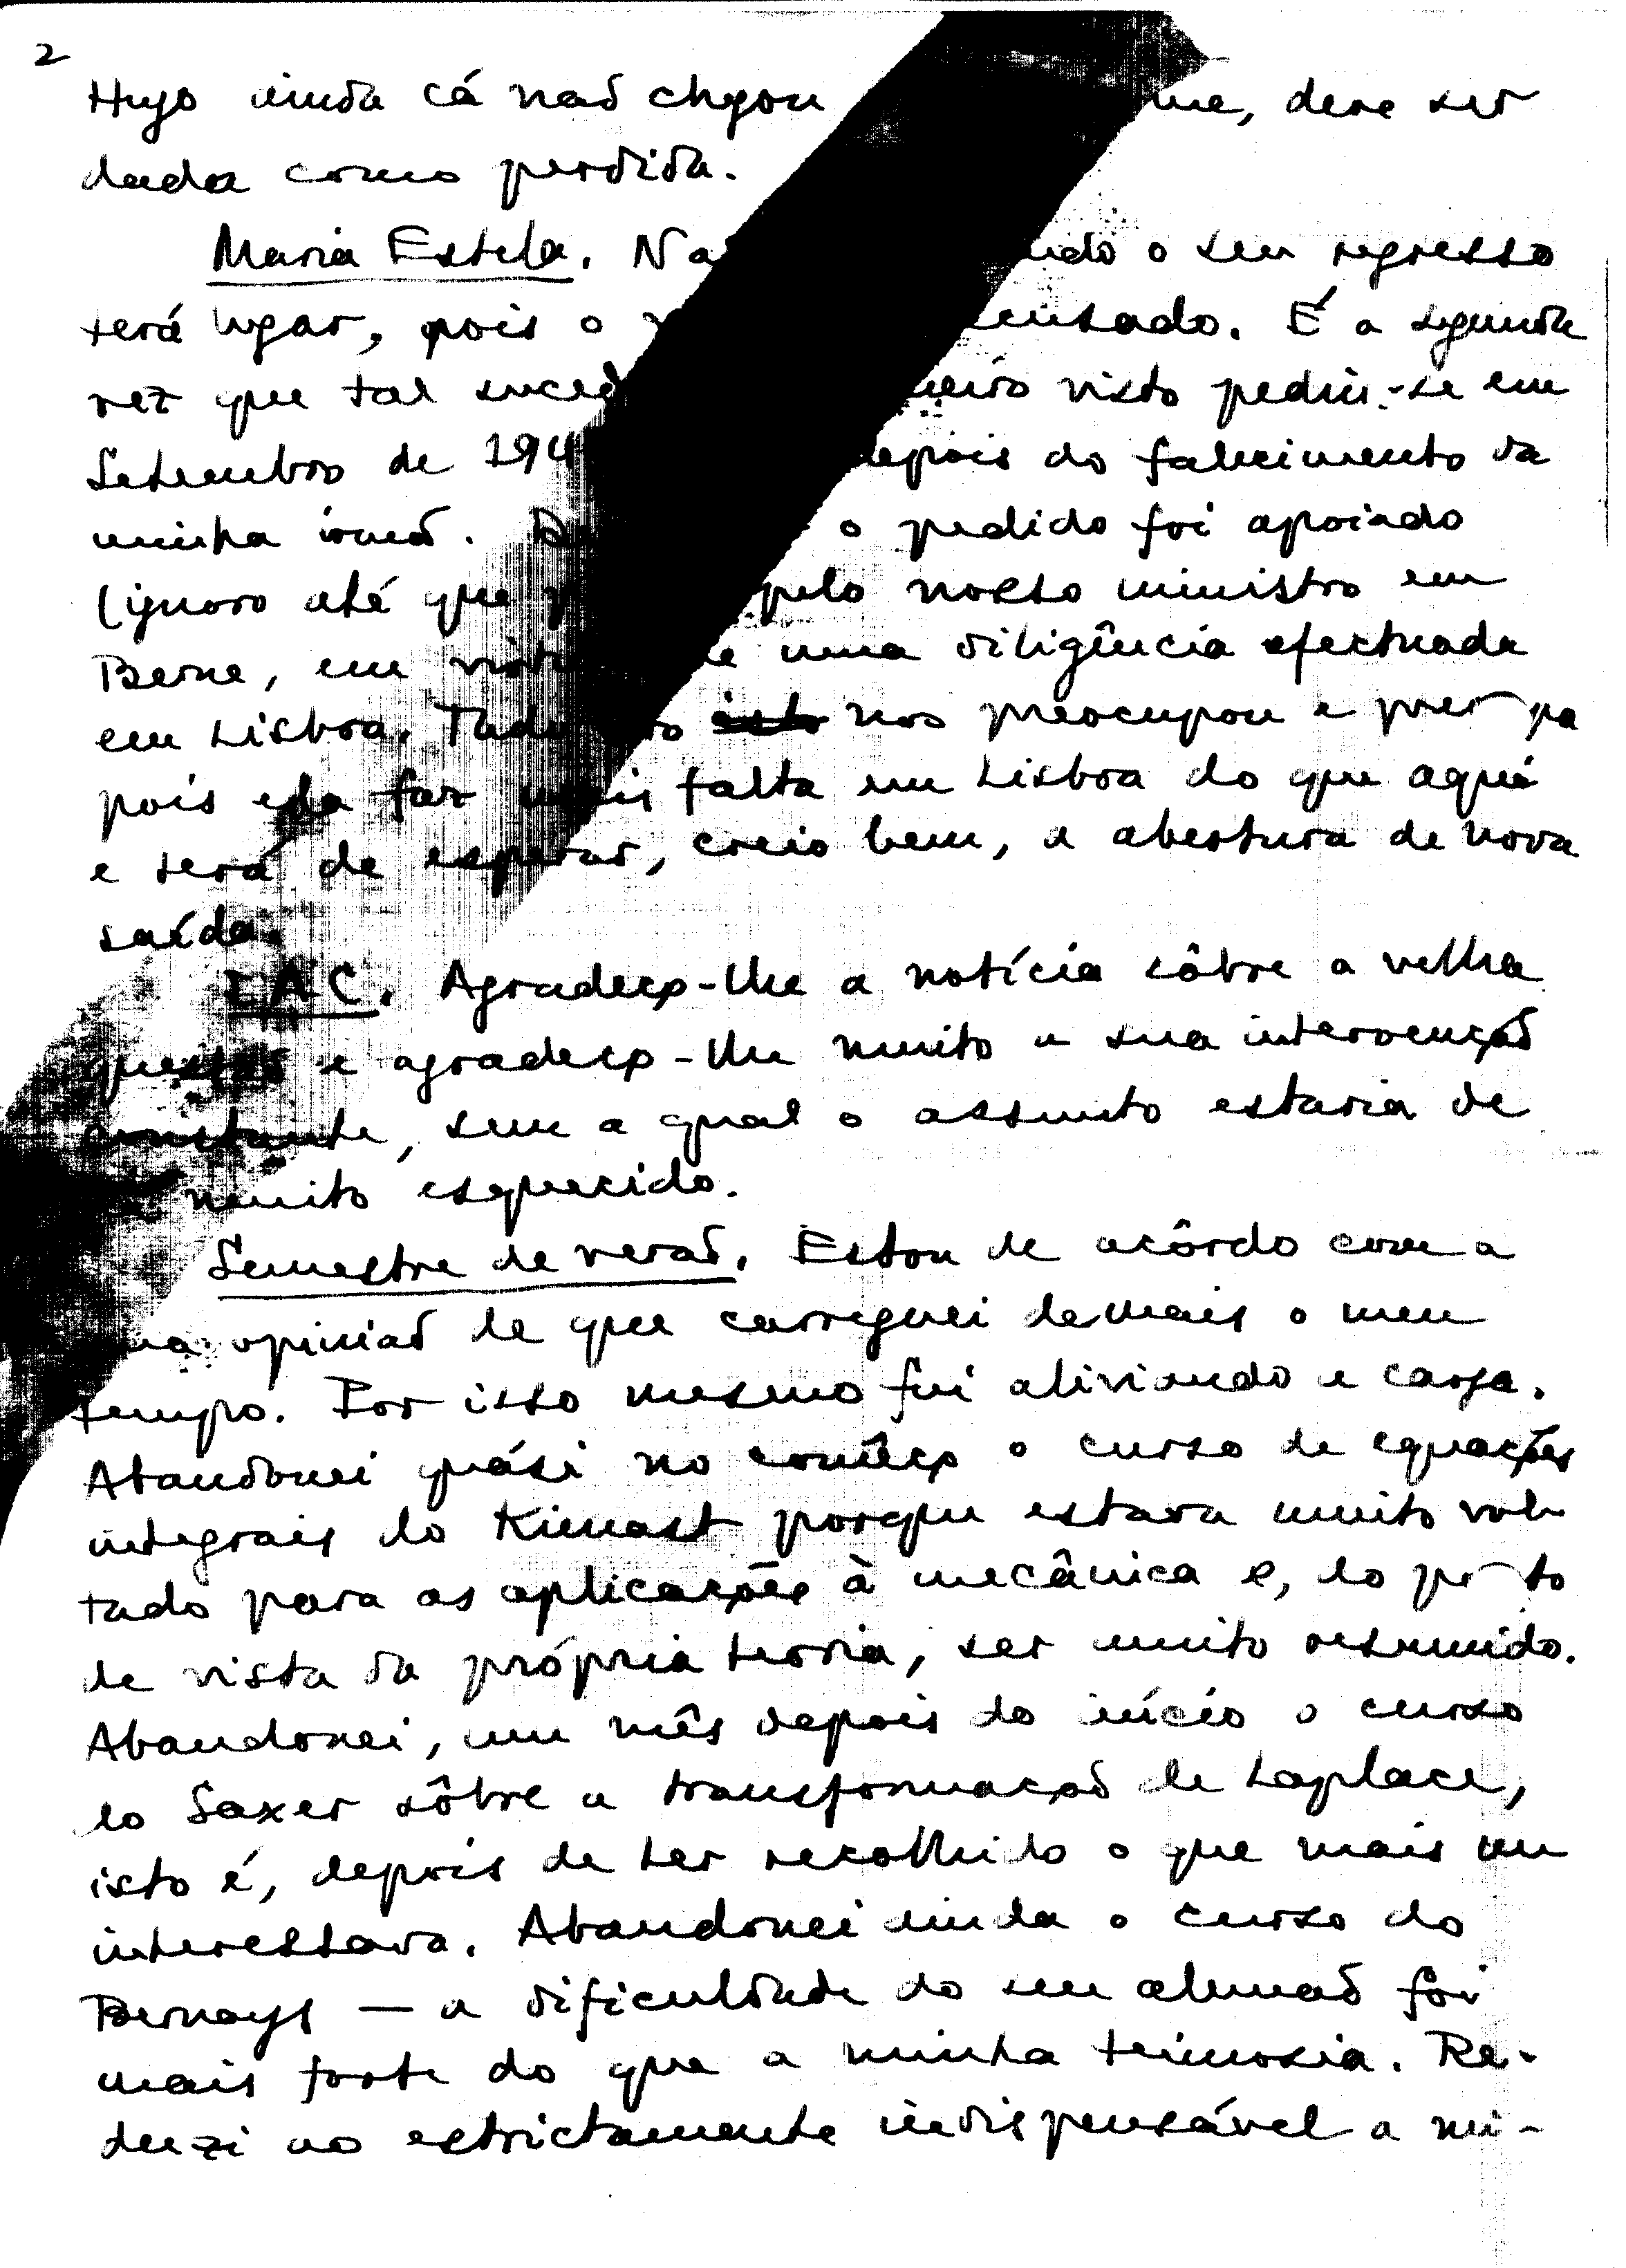 2
Hugo ainda cá não chegou me, deve ser
dada como perdida.
Maria Estela. Nã ndo o seu regresso
terá lugar, pois o ensado. É a segunda
vez que tal suced meiro visto pediu-se em
Setembro de 194 depois do falecimento da
minha irmã. De o pedido foi apoiado
(ignoro até que p pelo nosso ministro em
Berne, em virt de uma diligência efectuada
em Lisboa. Tudo nos preocupou e
pois ela faz mais falta em Lisboa do que aqui
e terá de esperar, creio bem, a abertura de nova
saída.
IAC. Agradeço-lhe a notícia sôbre a velha
questão e agradeço-lhe muito a sua intervenção
constante, sem a qual o assunto estaria de
há muito esquecido.
Semestre de verão. Estou de acôrdo com a
sua opinião de que carreguei demais o meu
tempo. Por isso mesmo fui aliviando a carga.
Abandonei quási no comêço o curso de equações
integrais do Kienast porque estava muito vol-
tado para as aplicações à mecânica e, do ponto
de vista da própria teoria, ser muito resumido.
Abandonei, um mês depois do início o curso
do Saxer sôbre a transformação de Laplace,
isto é, depois de ter recolhido o que mais me
interessava. Abandonei ainda o curso do
Bernays — a dificuldade do seu alemão foi
mais forte do que a minha teimosia. Re-
duzi ao estrictamente indispensável a mi-